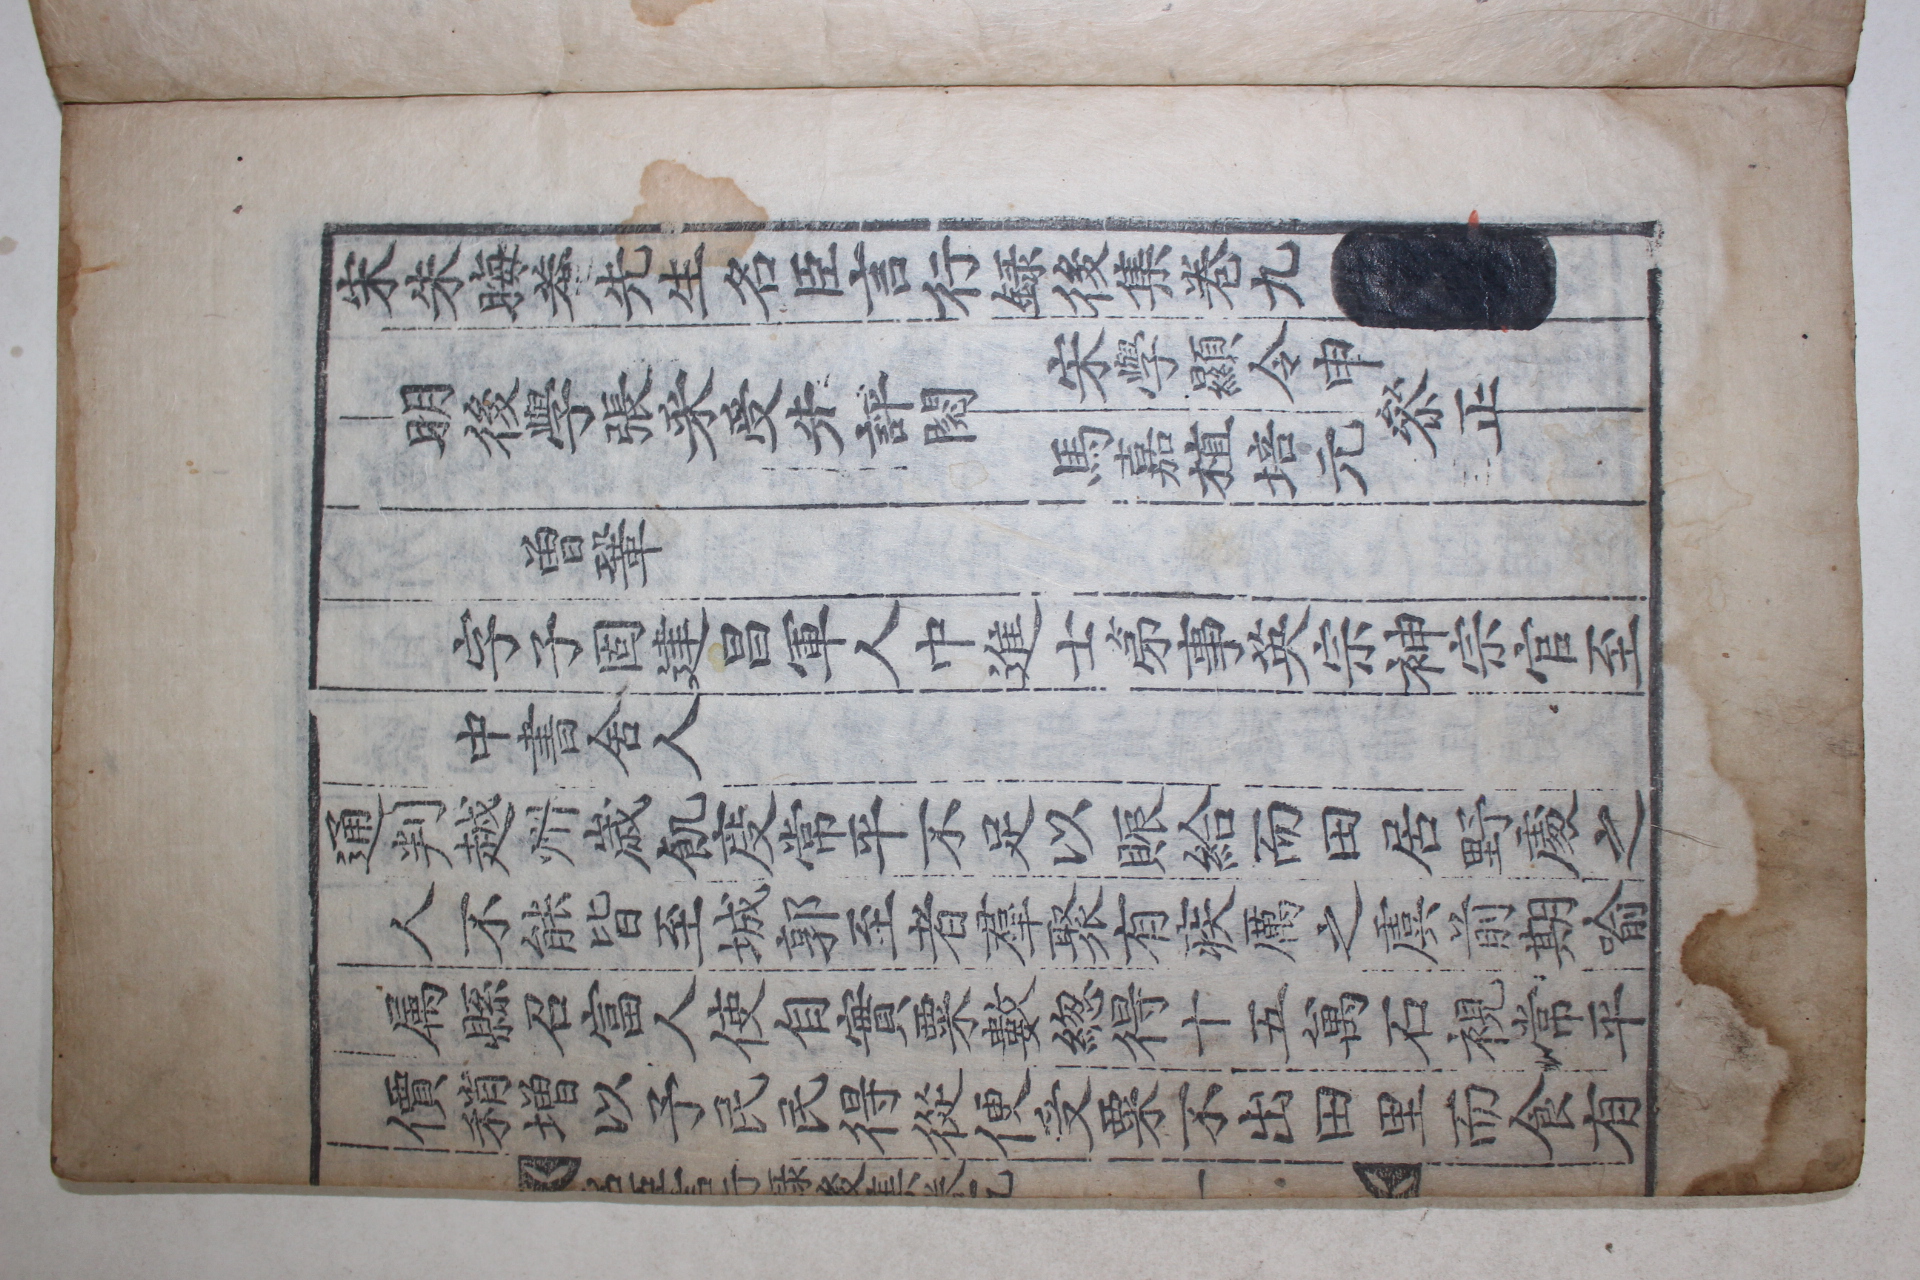 宋朱晦菴先生名臣言行録後集卷九
明後學張采受先評閱
宋學顯令申
馬嘉植培元
叅正
曾鞏
字子固建昌軍人中進士第事英宗神宗官至
中書舍人
通判越州歲飢度常平不足以賑給而田居野處之
人不能皆至城郭至者羣聚有疾厲之虞前期喻
属縣召富人使自實粟數緫得十五萬石視常平
價稍增以予民民得從便受粟不出田里而食有
名臣言行録後集卷九
一